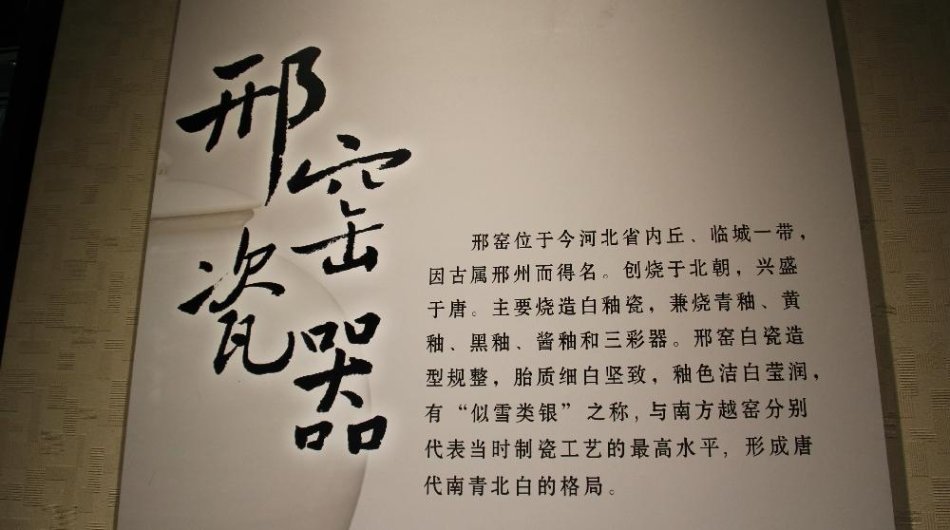 邢窑
瓷器
邢窑位于今河北省内丘、临城一带，
因古属邢州而得名。创烧于北朝，兴盛
于唐。主要烧造白釉瓷，兼烧青釉、黄
釉、黑釉、酱釉和三彩器。邢窑白瓷造
型规整，胎质细白坚致，釉色洁白莹润，
有“似雪类银”之称，与南方越窑分别
代表当时制瓷工艺的最高水平，形成唐
代南青北白的格局。